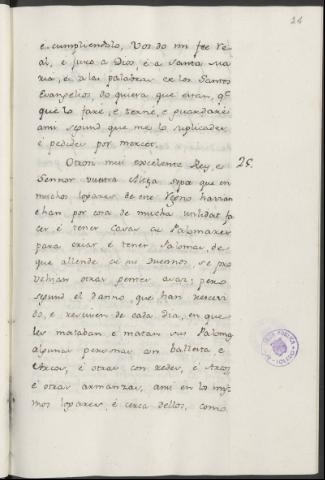 24
e cumpliendolo, Vos do mi fee Re
al, e juro a Dios, é a Santa Ma
ria, é a las palabras de los Santos
Evangelios, do quiera que están, qᵉ
que lo faré, e terné, e guardaré
ansi segund que me lo suplicades
é pedides por merced.
Otrosi mui excelente Rey, e 25.
Sennor vuestra Alteza sepa que en
muchos logares de este Regno havian
e han por cosa de mucha utilidat fa
cer é tener Casas de Palomares
para criar, é tener Palomas, de
que allende de sus Duennos se pro
vehian otras gentes asaz; pero
segund el danno, que han rescevi
do, e resciven de cada dia, en que
les mataban é matan sus Palomas
algunas personas con ballesta e
Arcos, é otras con redes, é Arcos
é otras armanzas, ansi en los mis
mos logares, é cerca dellos, como